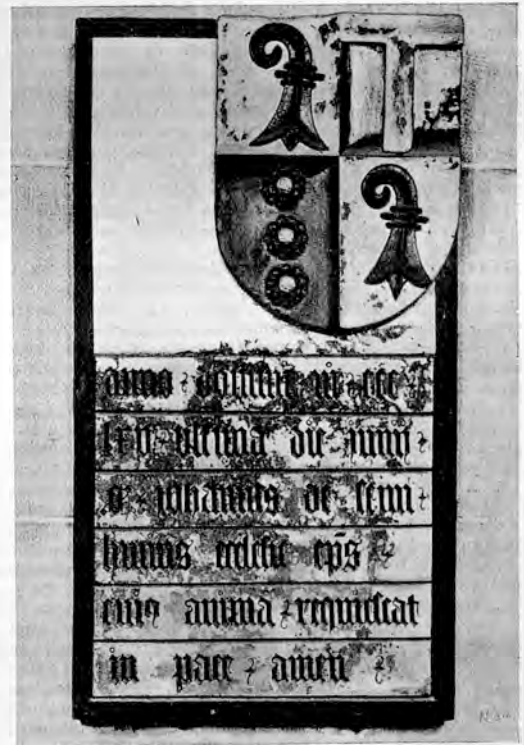 anno : domini m : ccc :
lxv ultima die iunij :
o : iohannes de senn :
huius ecclesie ep̄s :
cuiꝰ anima : requiescat
in pace : amen :